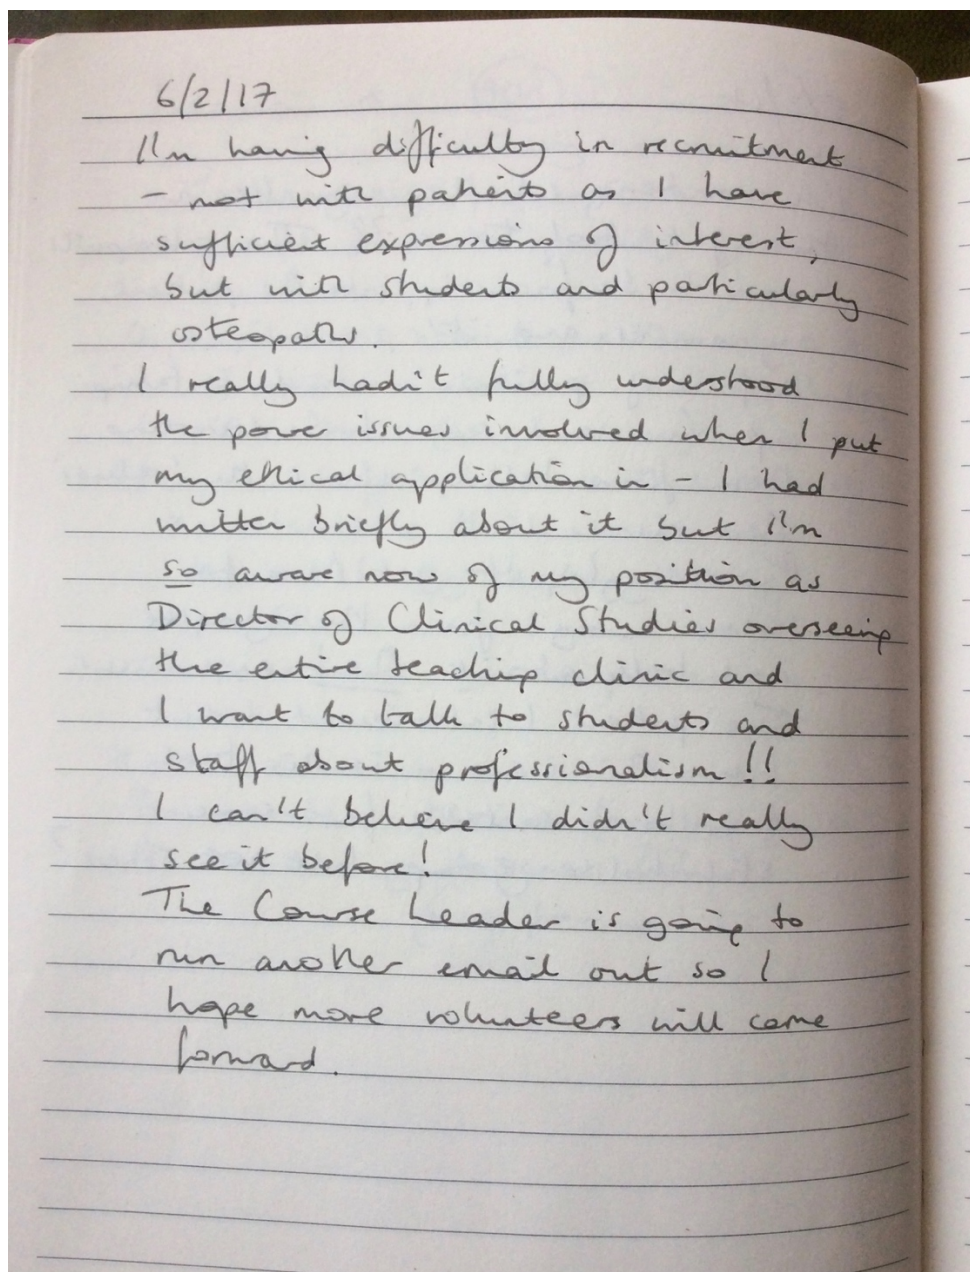 6/2/17
I'm having difficulty in recruitment
- not with patients as I have
sufficient expressions of interest,
but with students and particularly
osteopaths.
I really hadn't fully understood
the power issues involved when I put
my ethical application in - I had
written briefly about it but I'm
so aware now of my position as
Director of Clinical Studies overseeing
the entire teaching clinic and
I want to talk to students and
staff about professionalism!!
I can't believe I didn't really
see it before!
The Course Leader is going to
run another email out so I
hope more volunteers will come
forward.